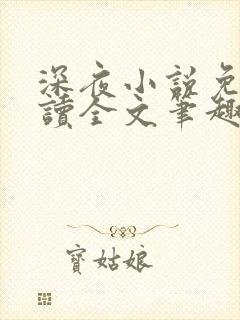 深夜小説免
讀全文筆趣
寶姑娘